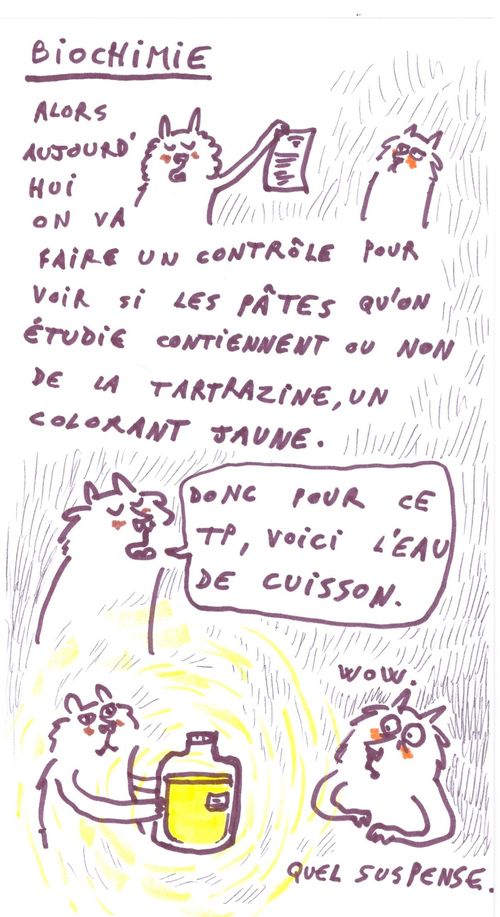 BIOCHIMIE
ALORS
AUJOURD'
HUI
ON VA
FAIRE UN CONTRÔLE POUR
VOIR SI LES PÂTES QU'ON
ÉTUDIE CONTIENNENT OU NON
DE LA TARTRAZINE, UN
COLORANT JAUNE.
DONC POUR CE
TP, VOICI L'EAU
DE CUISSON.
WOW.
QUEL SUSPENSE.